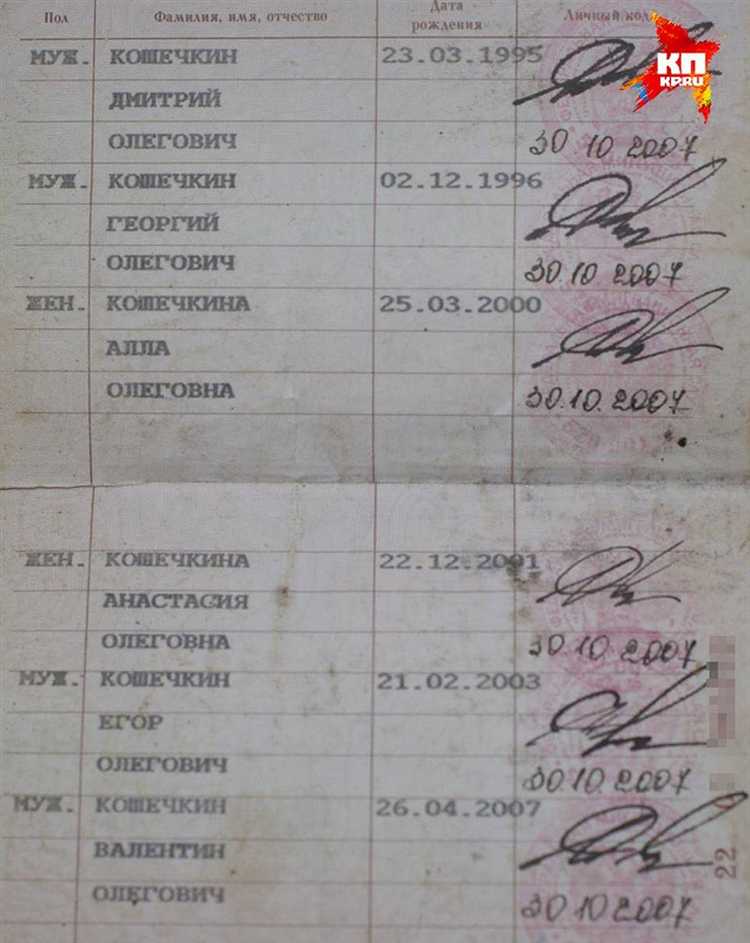 Пол Фамилия, имя, отчество Дата рождения Личный код
КП
KP.RU
МУЖ. КОШЕЧКИН 23.03.1995
ДМИТРИЙ
ОЛЕГОВИЧ 30 10 2007
МУЖ. КОШЕЧКИН 02.12.1996
ГЕОРГИЙ
ОЛЕГОВИЧ 30 10 2007
ЖЕН. КОШЕЧКИНА 25.03.2000
АЛЛА
ОЛЕГОВНА 30.10.2007
ЖЕН. КОШЕЧКИНА 22.12.2001
АНАСТАСИЯ
ОЛЕГОВНА 30 10 2007
МУЖ. КОШЕЧКИН 21.02.2003
ЕГОР
ОЛЕГОВИЧ 30.10.2007
МУЖ. КОШЕЧКИН 26.04.2007
ВАЛЕНТИН
22
ОЛЕГОВИЧ 30 10 2007